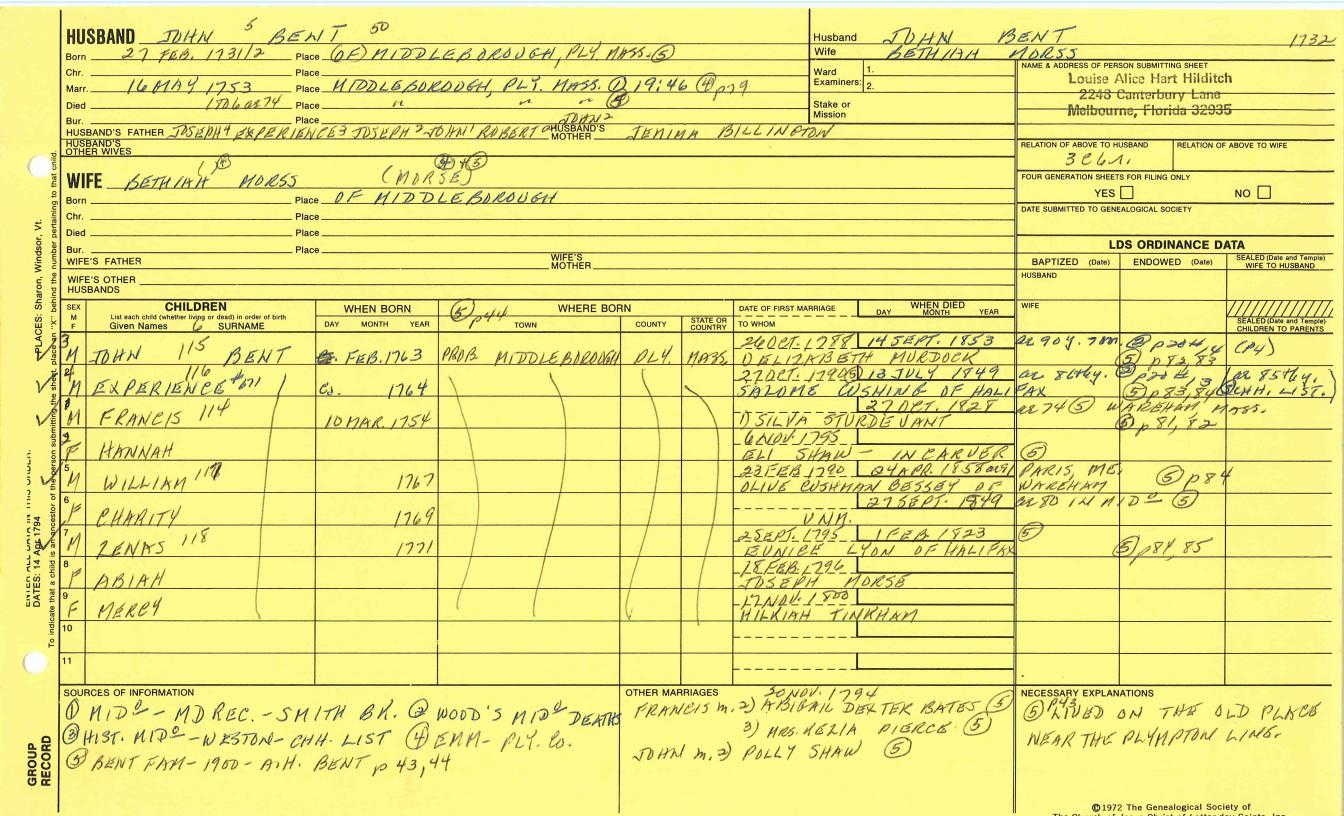 HUSBAND JOHN 5 BENT 50
Born 27 FEB. 1731/2 Place (OF) MIDDLEBOROUGH, PLY. MASS. ⑤
Chr. Place
Marr. 16 MAY 1753 Place MIDDLEBOROUGH, PLY. MASS. ① 19:46 ④ p79
Died Place " " " ⑤
Bur. Place
HUSBAND'S FATHER JOSEPH⁴ EXPERIENCE³ JOSEPH² JOHN¹ ROBERT HUSBAND'S MOTHER JEMIMA BILLINGTON
JOHN²
HUSBAND'S OTHER WIVES
Husband JOHN BENT 1732
Wife BETHIAH MORSS
Ward Examiners: 1.
2.
Stake or Mission
NAME & ADDRESS OF PERSON SUBMITTING SHEET
Louise Alice Hart Hilditch
2248 Canterbury Lane
Melbourne, Florida 32935
RELATION OF ABOVE TO HUSBAND
RELATION OF ABOVE TO WIFE
FOUR GENERATION SHEETS FOR FILING ONLY
YES NO
DATE SUBMITTED TO GENEALOGICAL SOCIETY
WIFE BETHIAH MORSS (MORSE)
Born Place OF MIDDLEBOROUGH
Chr. Place
Died Place
Bur. Place
WIFE'S FATHER WIFE'S MOTHER
WIFE'S OTHER HUSBANDS
LDS ORDINANCE DATA
BAPTIZED (Date) ENDOWED (Date) SEALED (Date and Temple) WIFE TO HUSBAND
HUSBAND
WIFE
SEALED (Date and Temple) CHILDREN TO PARENTS
SEX M F
CHILDREN
List each child (whether living or dead) in order of birth
Given Names SURNAME
WHEN BORN
DAY MONTH YEAR
⑤ p44 WHERE BORN
TOWN COUNTY STATE OR COUNTRY
DATE OF FIRST MARRIAGE
TO WHOM
WHEN DIED
DAY MONTH YEAR
3 M JOHN 115 BENT FEB. 1763 PROB. MIDDLEBOROUGH PLY. MASS. 26 OCT. 1788 14 SEPT. 1853 ae 90 y. 7 m.
D ELIZABETH MURDOCK ⑤ p 82, 83 (P4)
M EXPERIENCE #671 116 Ca. 1764 27 OCT. 13 JULY 1849 ae 86thy. ae 85thy.
SALOME CUSHING OF HALIFAX ⑤ p 83, 84 CHH. LIST.
M FRANCIS 114 10 MAR. 1754 27 OCT. 1828 ae 74 ⑤ WAREHAM, MASS.
D SILVA STURDEVANT ⑤ p 81, 82
F HANNAH 6 NOV. 1795
ELI SHAW - IN CARVER ⑤
5 M WILLIAM 117 1767 23 FEB 1790 24 APR. 1858 PARIS, ME.
OLIVE CUSHMAN BESSEY OF WAREHAM ⑤ p 84
6 F CHARITY 1769 27 SEPT. 1849 ae 80 IN MIDº ⑤
UNM.
7 M ZENAS 118 1771 2 SEPT. 1795 1 FEB 1823 ⑤
EUNICE LYON OF HALIFAX ⑤ p 84, 85
8 F ABIAH 18 FEB. 1796
JOSEPH MORSE
9 F MERCY 17 NOV. 1800
HILKIAH TINKHAM
10
11
SOURCES OF INFORMATION
① MIDº - MD REC. - SMITH BK. ② WOOD'S MIDº DEATHS
③ HIST. MIDº - WESTON - CHH. LIST ④ EMM - PLY. Co.
⑤ BENT FAM - 1900 - A.H. BENT p 43, 44
OTHER MARRIAGES
30 NOV. 1794
FRANCIS m. 2) ABIGAIL DEXTER BATES ⑤
3) MRS. PIERCE. ⑤
JOHN m. 2) POLLY SHAW ⑤
NECESSARY EXPLANATIONS
⑤ p43 LIVED ON THE OLD PLACE
NEAR THE PLYMPTON LINE.
©1972 The Genealogical Society of
PLACES: Sharon, Windsor, Vt.
To indicate that a child is an ancestor of the person submitting the sheet, place an "X" behind the number pertaining to that child.
DATES: 14 Apr 1794
GROUP RECORD